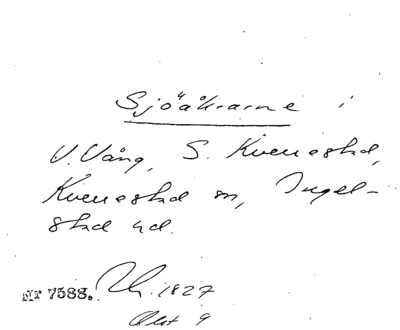 Sjöåkrarne i
V. Vång, S. Kverrestad,
Kverrestad sn, Ingel-
stad hd.
Nr 7588. 1827
Akt 9